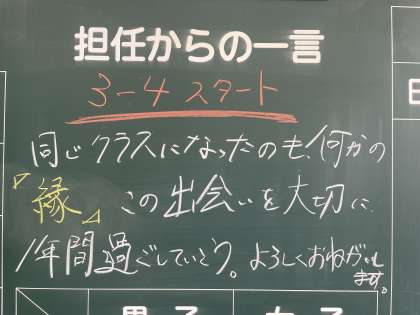 担任からの一言
3-4 スタート
同じクラスになったのも、何かの
「縁」この出会いを大切に
1年間過ごしていこう。よろしくおねがいし
ます。
男子 女子